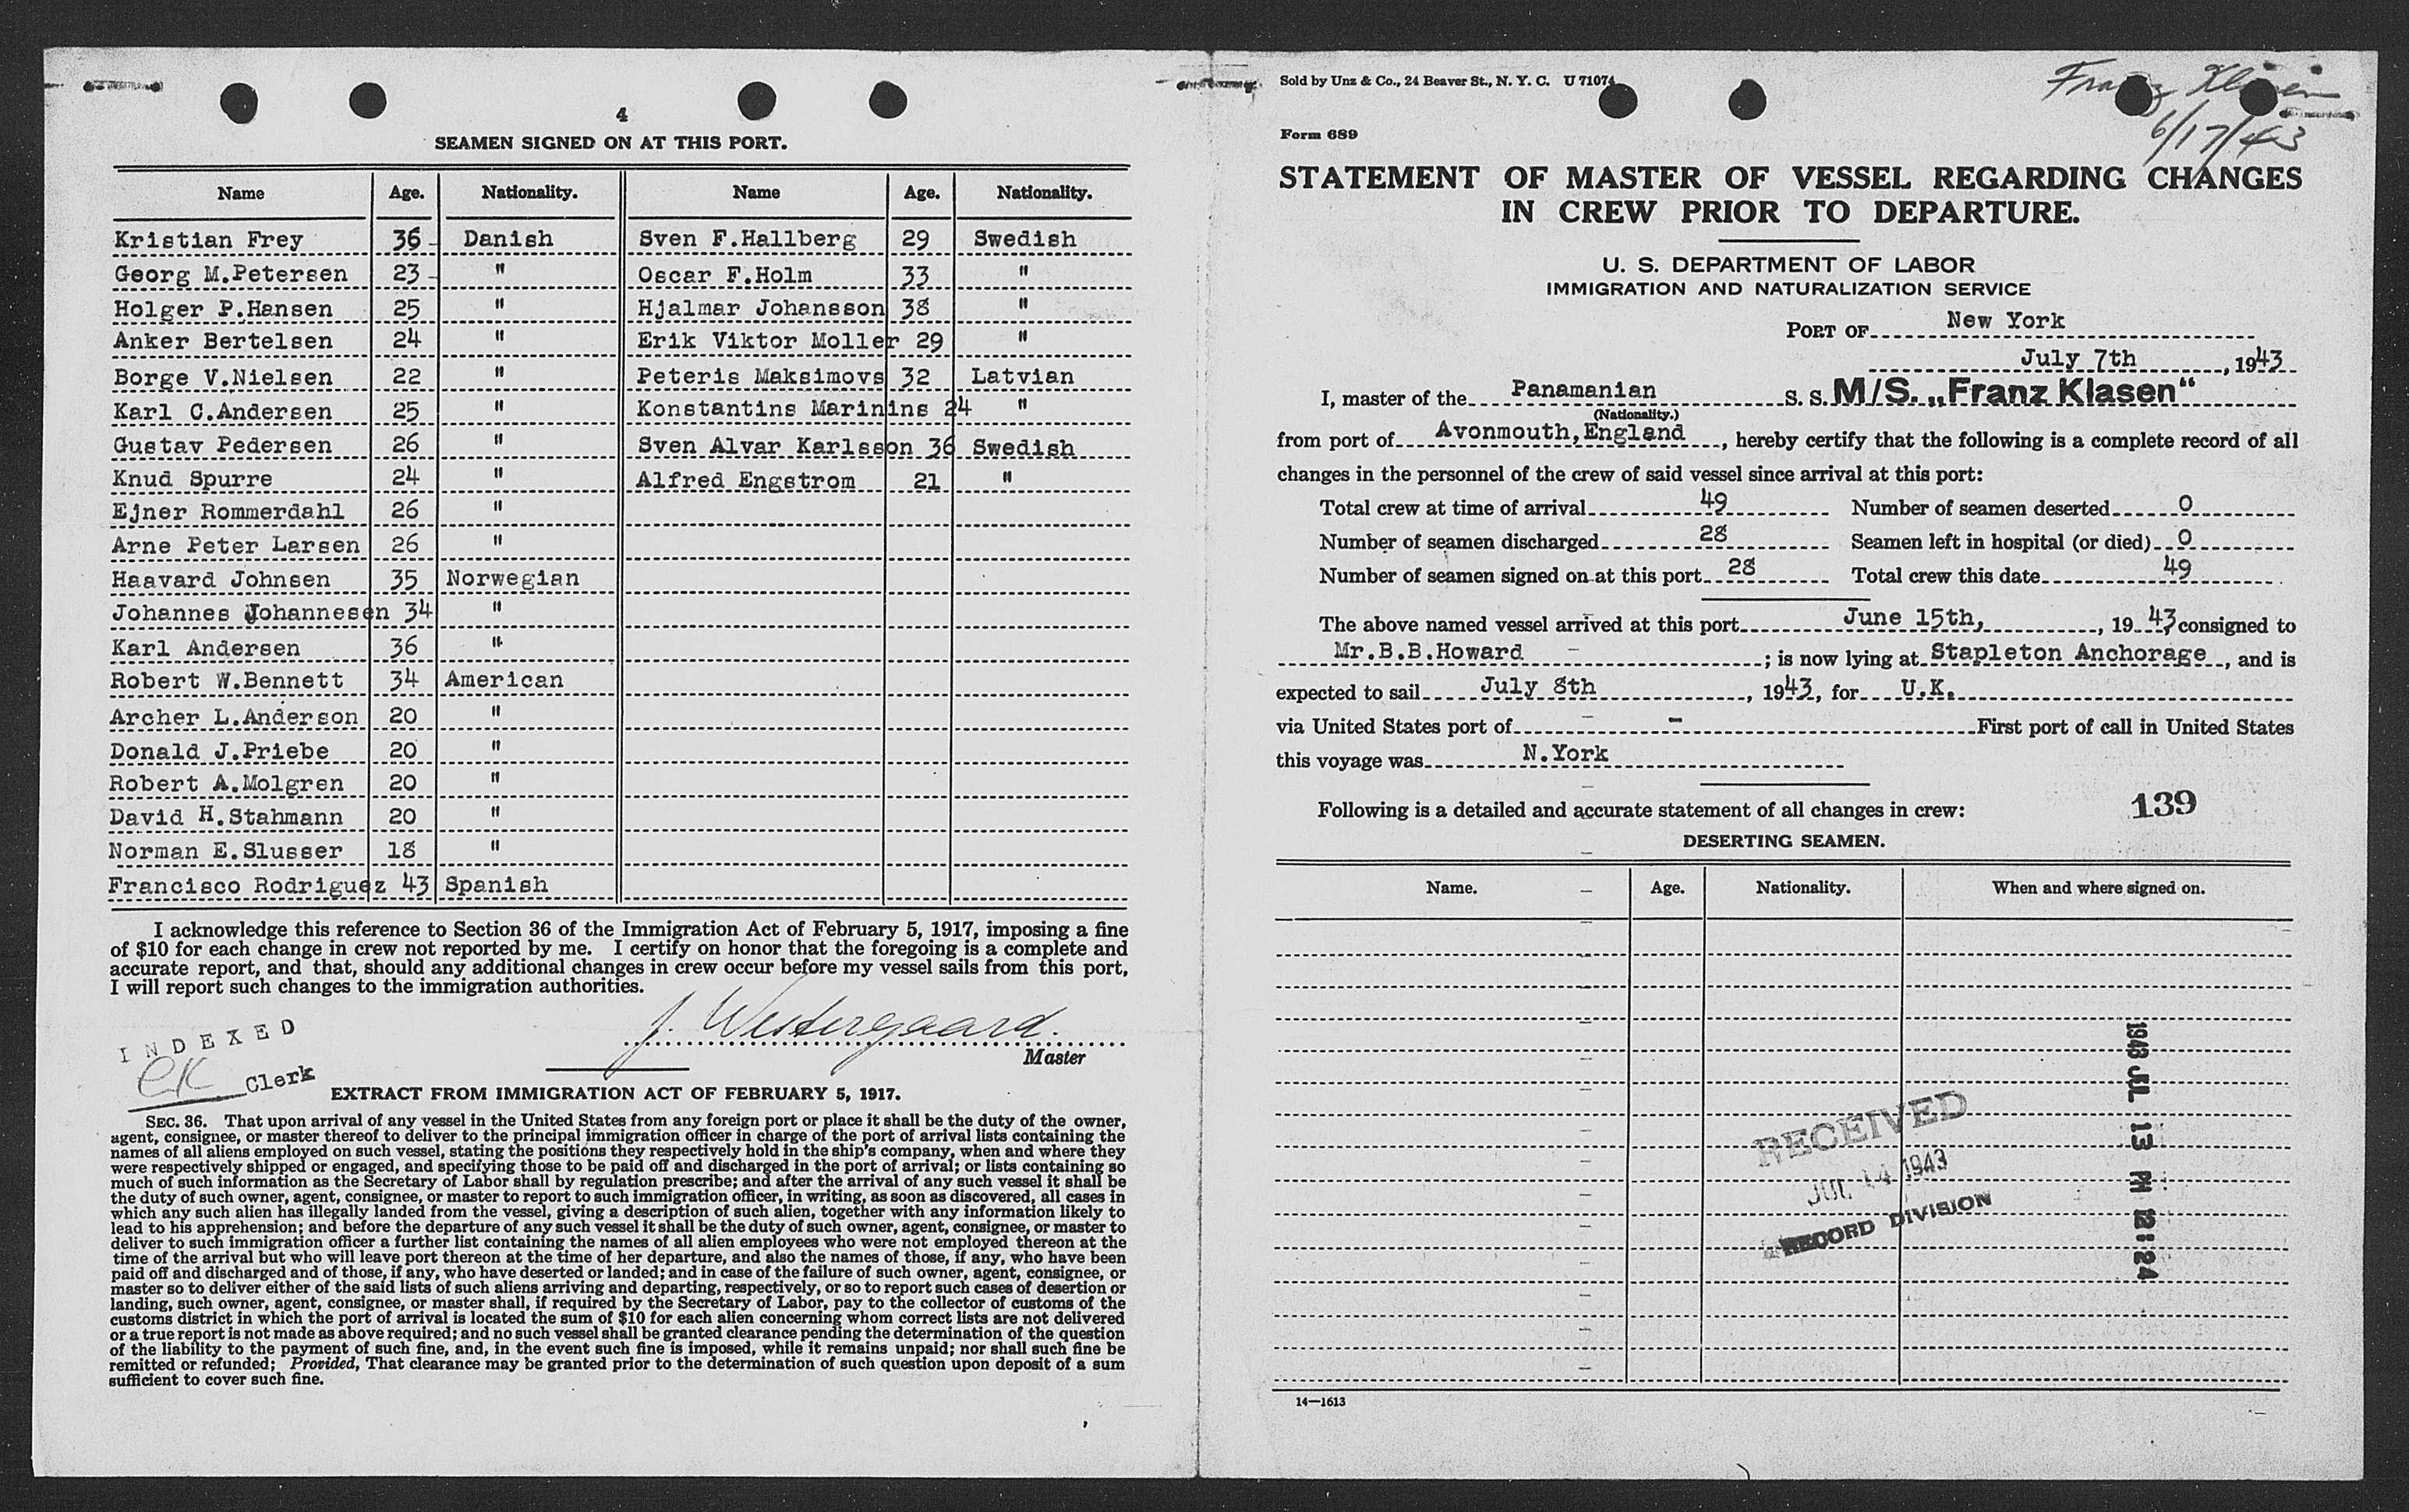 4
SEAMEN SIGNED ON AT THIS PORT.
Name Age. Nationality. Name Age. Nationality.
Kristian Frey 36 Danish Sven F.Hallberg 29 Swedish
Georg M.Petersen 23 " Oscar F.Holm 33 "
Holger P.Hansen 25 " Hjalmar Johansson 38 "
Anker Bertelsen 24 " Erik Viktor Moller 29 "
Borge V.Nielsen 22 " Peteris Maksimovs 32 Latvian
Karl C.Andersen 25 " Konstantins Marinins 24 "
Gustav Pedersen 26 " Sven Alvar Karlsson 36 Swedish
Knud Spurre 24 " Alfred Engstrom 21 "
Ejner Rommerdahl 26 "
Arne Peter Larsen 26 "
Haavard Johnsen 35 Norwegian
Johannes Johannesen 34 "
Karl Andersen 36 "
Robert W.Bennett 34 American
Archer L.Anderson 20 "
Donald J.Priebe 20 "
Robert A.Molgren 20 "
David H.Stahmann 20 "
Norman E.Slusser 18 "
Francisco Rodriguez 43 Spanish
I acknowledge this reference to Section 36 of the Immigration Act of February 5, 1917, imposing a fine
of $10 for each change in crew not reported by me. I certify on honor that the foregoing is a complete and
accurate report, and that, should any additional changes in crew occur before my vessel sails from this port,
I will report such changes to the immigration authorities.
J. Westergaard.
Master
INDEXED
CK Clerk
EXTRACT FROM IMMIGRATION ACT OF FEBRUARY 5, 1917.
SEC. 36. That upon arrival of any vessel in the United States from any foreign port or place it shall be the duty of the owner,
agent, consignee, or master thereof to deliver to the principal immigration officer in charge of the port of arrival lists containing the
names of all aliens employed on such vessel, stating the positions they respectively hold in the ship's company, when and where they
were respectively shipped or engaged, and specifying those to be paid off and discharged in the port of arrival; or lists containing so
much of such information as the Secretary of Labor shall by regulation prescribe; and after the arrival of any such vessel it shall be
the duty of such owner, agent, consignee, or master to report to such immigration officer, in writing, as soon as discovered, all cases in
which any such alien has illegally landed from the vessel, giving a description of such alien, together with any information likely to
lead to his apprehension; and before the departure of any such vessel it shall be the duty of such owner, agent, consignee, or master to
deliver to such immigration officer a further list containing the names of all alien employees who were not employed thereon at the
time of the arrival but who will leave port thereon at the time of her departure, and also the names of those, if any, who have been
paid off and discharged and of those, if any, who have deserted or landed; and in case of the failure of such owner, agent, consignee, or
master so to deliver either of the said lists of such aliens arriving and departing, respectively, or so to report such cases of desertion or
landing, such owner, agent, consignee, or master shall, if required by the Secretary of Labor, pay to the collector of customs of the
customs district in which the port of arrival is located the sum of $10 for each alien concerning whom correct lists are not delivered
or a true report is not made as above required; and no such vessel shall be granted clearance pending the determination of the question
of the liability to the payment of such fine, and, in the event such fine is imposed, while it remains unpaid; nor shall such fine be
remitted or refunded; Provided, That clearance may be granted prior to the determination of such question upon deposit of a sum
sufficient to cover such fine.
Sold by Unz & Co., 24 Beaver St., N. Y. C. U 71074
Franz Klasen
6/17/43
Form 689
STATEMENT OF MASTER OF VESSEL REGARDING CHANGES
IN CREW PRIOR TO DEPARTURE.
U. S. DEPARTMENT OF LABOR
IMMIGRATION AND NATURALIZATION SERVICE
PORT OF New York
July 7th, 1943
I, master of the Panamanian S. S. M/S. „Franz Klasen“
(Nationality.)
from port of Avonmouth, England, hereby certify that the following is a complete record of all
changes in the personnel of the crew of said vessel since arrival at this port:
Total crew at time of arrival 49 Number of seamen deserted 0
Number of seamen discharged 28 Seamen left in hospital (or died) 0
Number of seamen signed on at this port 28 Total crew this date 49
The above named vessel arrived at this port June 15th, , 19 43, consigned to
Mr.B.B.Howard - ; is now lying at Stapleton Anchorage, and is
expected to sail July 8th, 1943, for U.K.
via United States port of - First port of call in United States
this voyage was N.York
Following is a detailed and accurate statement of all changes in crew: 139
DESERTING SEAMEN.
Name. Age. Nationality. When and where signed on.
1943 JUL 13 PM 12:24
RECEIVED
JUL 14 1943
RECORD DIVISION
14—1613